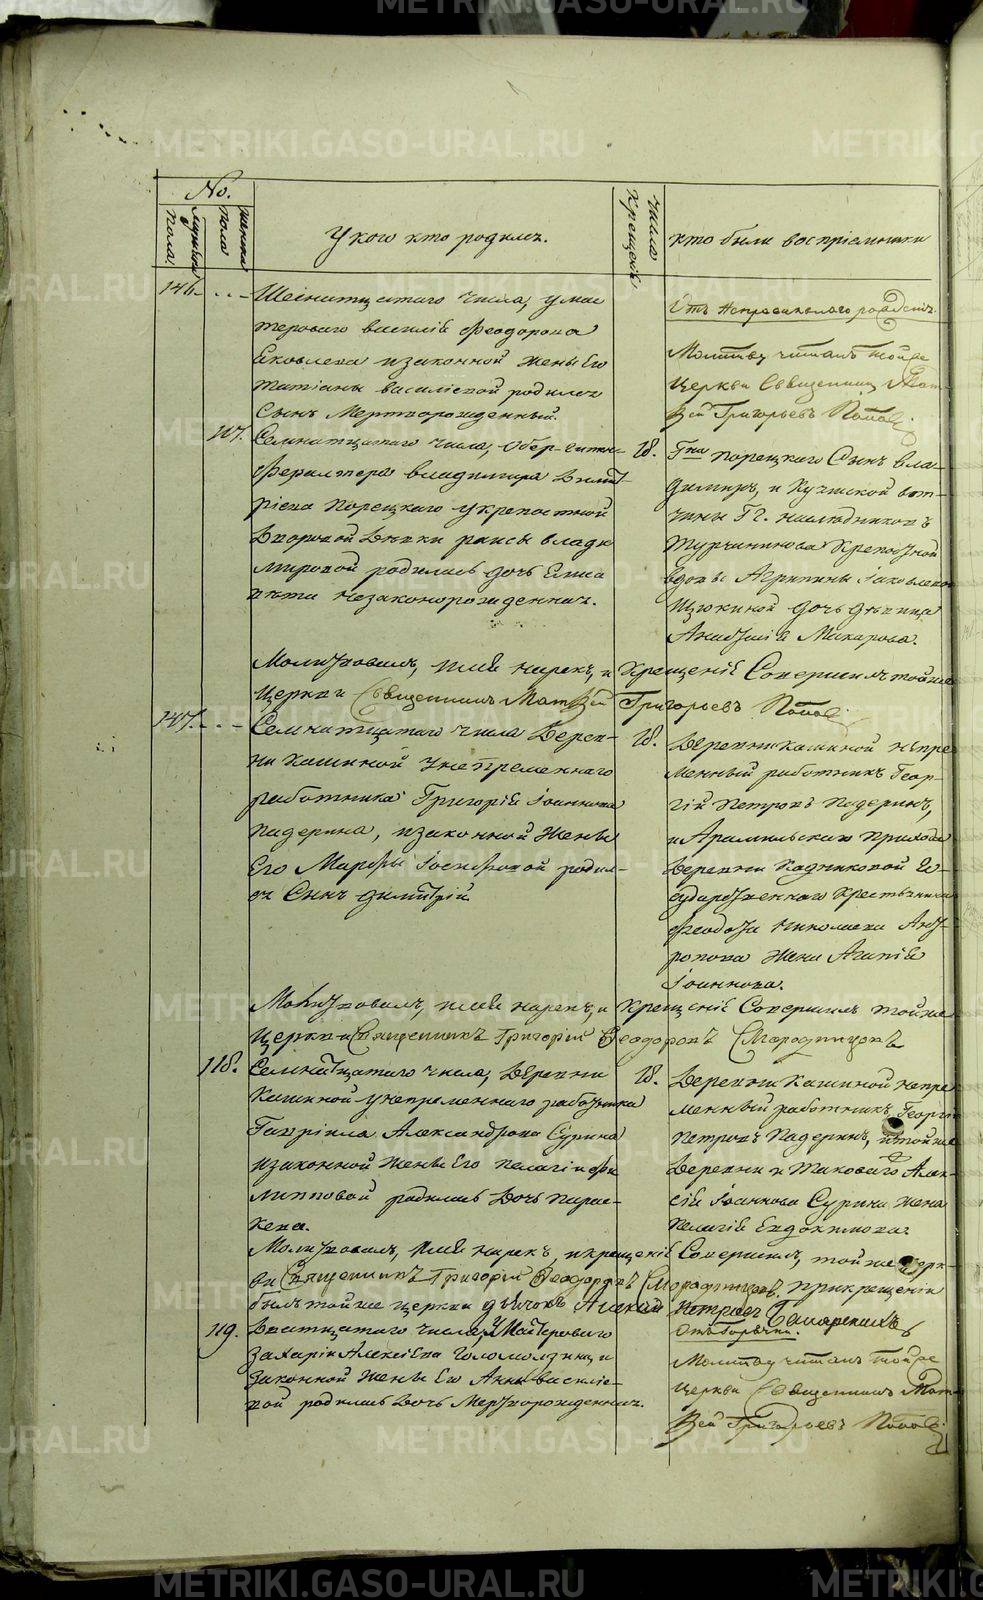 METRIKI.GASO-URAL.RU
No.
мужеска пола.
женска пола
У кого кто родился.
Числа Крещенія
кто были воспріемники
146.
Шеснатцатаго числа, у мас
тероваго василія Феодорова
Яковлева изаконной жены Его
татіаны василіевой родился
Сынъ Мертворожденный.
Молитву читалъ тойже
церкви Священникъ Мат
вей Григорьевъ Поповъ.
117.
Семнатцатаго числа, Обер-гитен-
фервалтера владимира Димит
ріева Порецкаго укрепостной
Дворовой Девки раисы влади
мировой родилась дочь Елиса
вета незаконорожденная.
18.
Гна порецкаго Сынъ вла-
димиръ, и
вот-
чины Гг. наследниковъ
Турчанинова Крепостной
вдовы Агрипины Іаковлевой
Щукиной дочь девица
Анастасія Макарова.
Молитвовалъ, имя нарекъ, и Крещеніе Совершилъ тойже
церкви Священникъ Матвей Григорьевъ Поповъ
147.
Семнатцатаго числа Дерев-
ни Кашиной Унепременнаго
работника Григорія Іоаннова
Падерина, изаконной жены
Его Марфы Іосифовой родил-
ся Сынъ Димитрій.
18.
Деревни Кашиной непре
менный работникъ Геор-
гій Петровъ Падеринъ,
и Арамильскаго прихода
Деревни Кадниковой Го-
сударственнаго Крестьянина
Феодота Николаева Ант-
ропова жена Агапія
Іоаннова.
Молитвовалъ, имя нарекъ, и Крещеніе Совершилъ тойже
Церкви Священникъ Григорій Феодоровъ Смородинцовъ
118.
Семнатцатаго числа, Деревни
Кашиной унепременнаго работника
Гавріила Александрова Сурина
изаконной жены Его Пелагіи Фи
липповой родилась Дочь Парас-
кева.
18.
Деревни Кашиной непре
менный работникъ Георгій
Петровъ Падеринъ, и тойже
Деревни и таковаго Алек-
сія Іоаннова Сурина жена
Пелагія Евдокимова.
Молитвовалъ, имя нарекъ, и крещеніе Совершилъ, тойже церк-
ви Священникъ Григорій Феодоровъ Смородинцовъ. При крещеніи
былъ тойже церкви дьячокъ Алексій Петровъ
119.
Дватцатаго числа у Мастероваго
Захаріи Алексіева Голомолзина и
законной жены Его Анны василіе-
вой родилась Дочь Мертворожденная.
Отъ Горячки.
Молитву читалъ тойже
церкви Священникъ Мат
вей Григорьевъ Поповъ